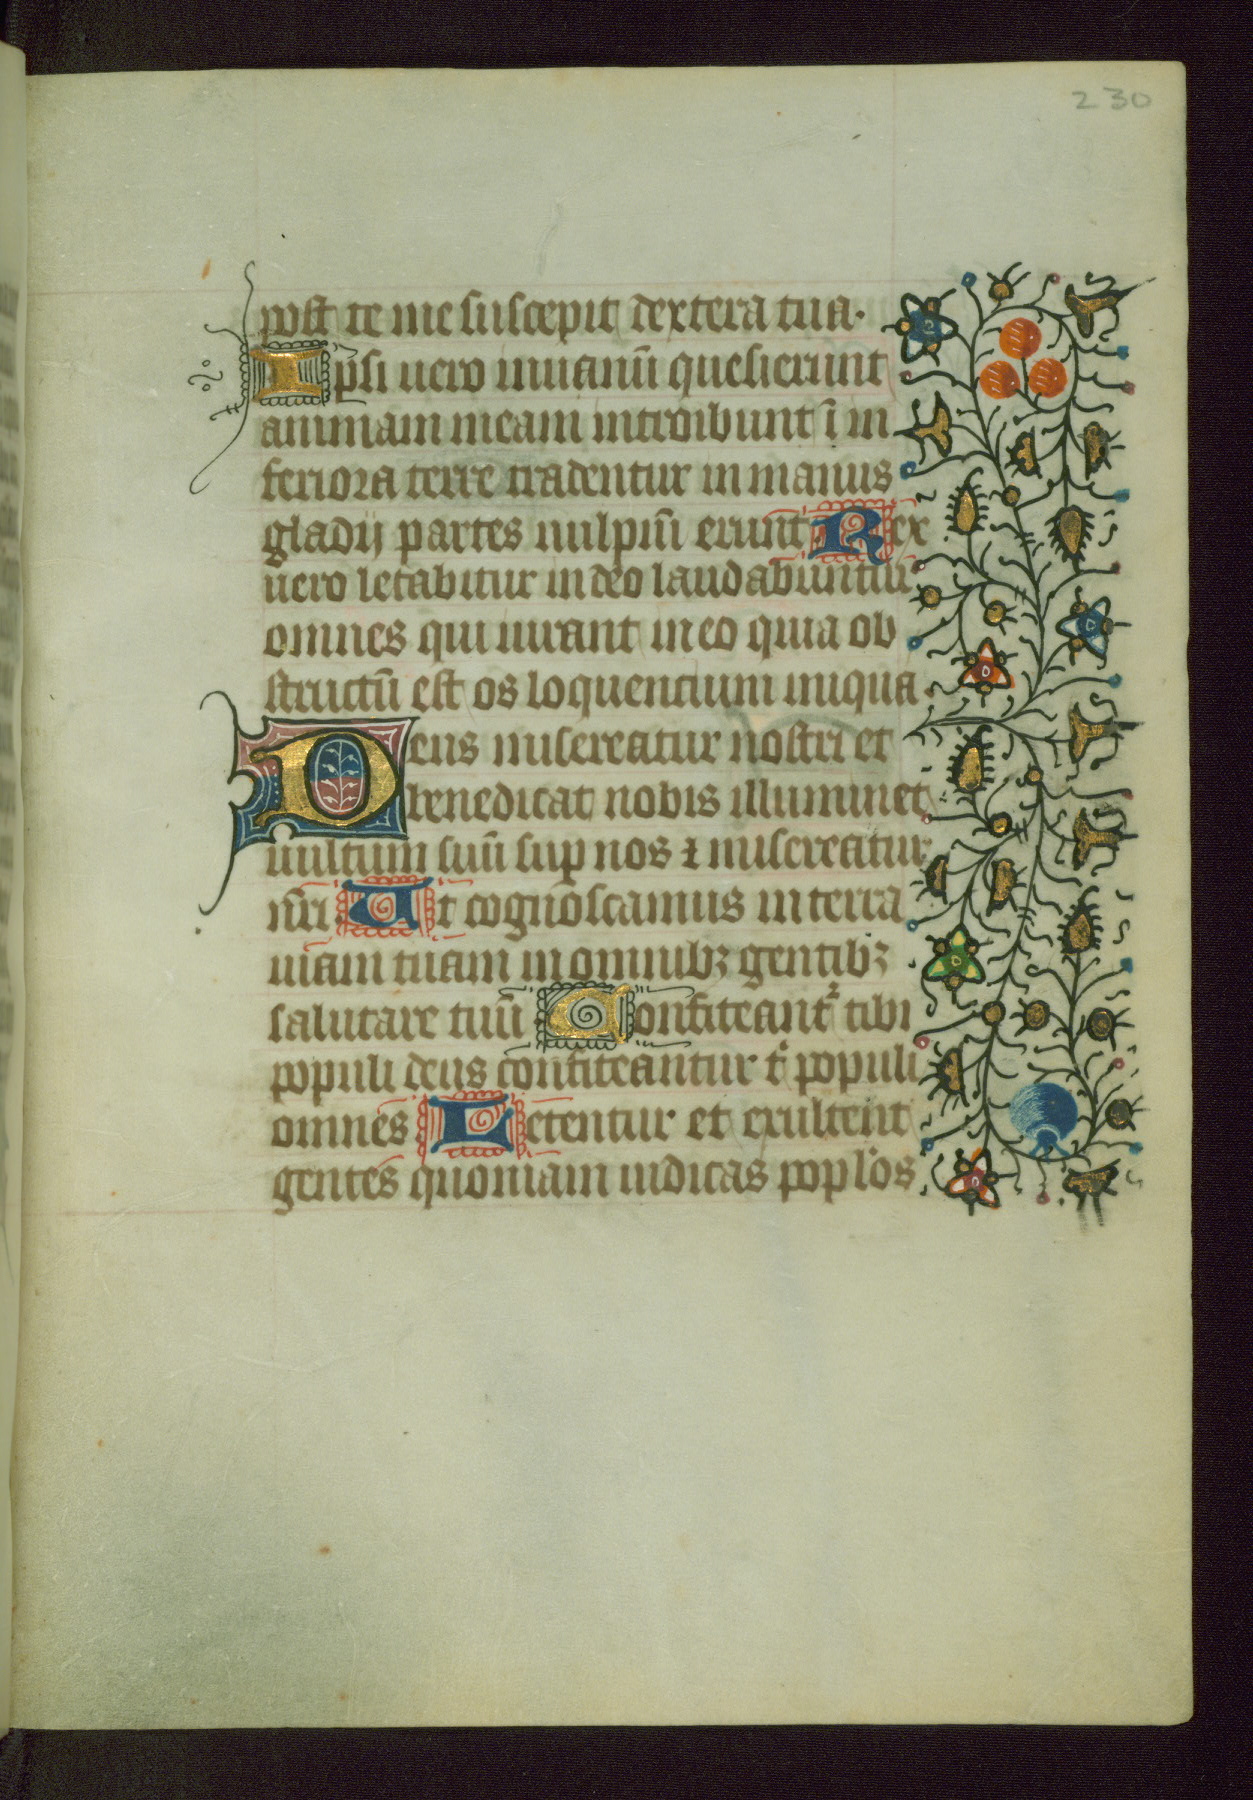 230
post te me suscepit dextera tua.
Ipsi uero inuanū quesierunt
animam meam introibunt ī in
feriora terre tradentur in manus
gladij partes uulpiū erunt Rex
uero letabitur in deo laudabuntur
omnes qui iurant in eo quia ob
structū est os loquentium iniqua.
Deus misereatur nostri et
benedicat nobis illuminet
uultum suū sup nos ⁊ misereatur
nr̄i Ut cognoscamus in terra
uiam tuam in omnibꝫ gentibꝫ
salutare tuū Confiteantᷣ tibi
populi deus confiteantur t' populi
omnes Letentur et exultent
gentes quoniam iudicas poplos